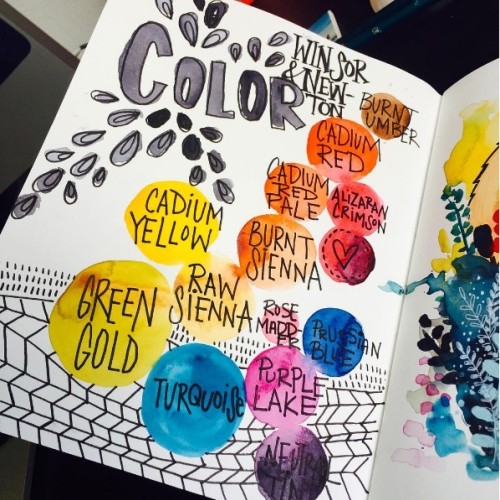 COLOR
WINSOR
& NEW-
TON
BURNT
UMBER
CADIUM
RED
CADIUM
RED
PALE
ALIZARAN
CRIMSON
CADIUM
YELLOW
BURNT
SIENNA
RAW
SIENNA
GREEN
GOLD
ROSE
MADD-
ER
PRUSSIAN
BLUE
TURQUOISE
PURPLE
LAKE
NEUTRAL
TINT